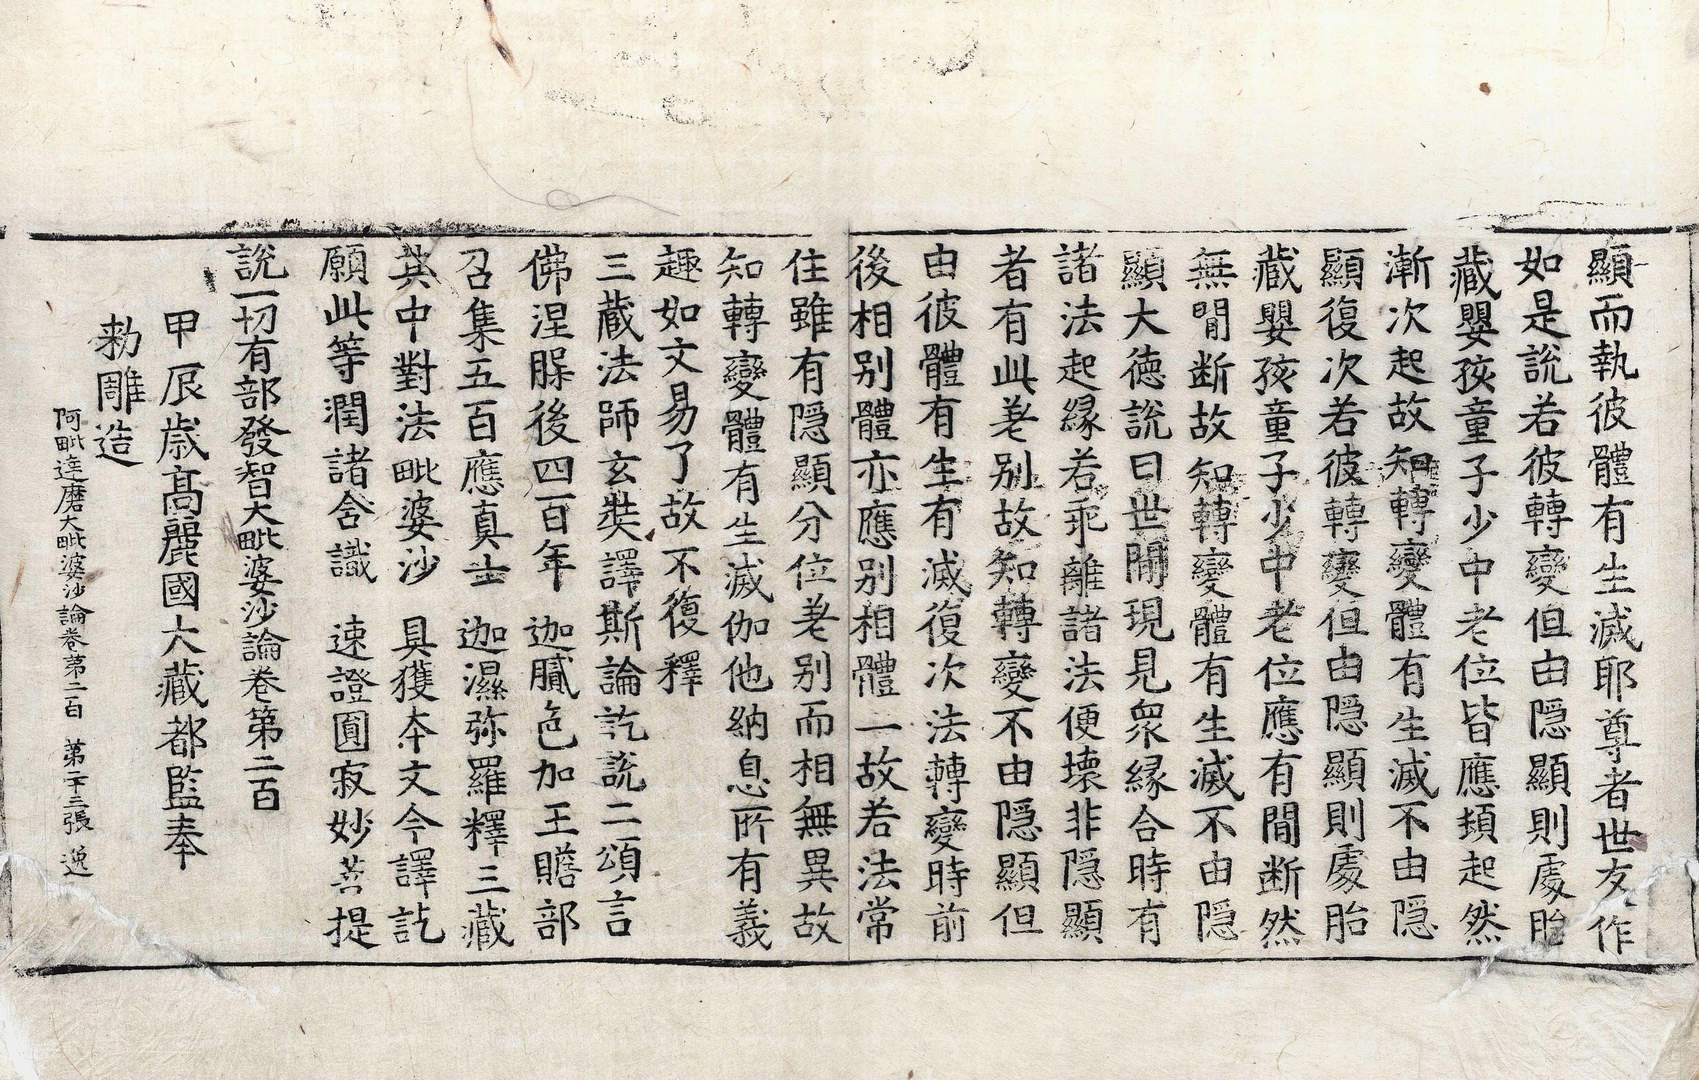 顯而執彼體有生滅耶尊者世友作
如是說若彼轉變但由隱顯則處胎
藏嬰孩童子少中老位皆應頓起然
漸次起故知轉變體有生滅不由隱
顯復次若彼轉變但由隱顯則處胎
藏嬰孩童子少中老位應有間斷然
無間斷故知轉變體有生滅不由隱
顯大德說曰世間現見衆緣合時有
諸法起緣若乖離諸法便壞非隱顯
者有此差別故知轉變不由隱顯但
由彼體有生有滅復次法轉變時前
後相別體亦應別相體一故若法常
住雖有隱顯分位差別而相無異故
知轉變體有生滅伽他納息所有義
趣如文易了故不復釋
三藏法師玄奘譯斯論訖說二頌言
佛涅槃後四百年 迦膩色加王贍部
召集五百應真士 迦濕弥羅釋三藏
其中對法毗婆沙 具獲本文今譯訖
願此等潤諸含識 速證圓寂妙菩提
說一切有部發智大毗婆沙論卷第二百
甲辰歲高麗國大藏都監奉
勑雕造
阿毗達磨大毗婆沙論卷第二百 第二十三張 逸